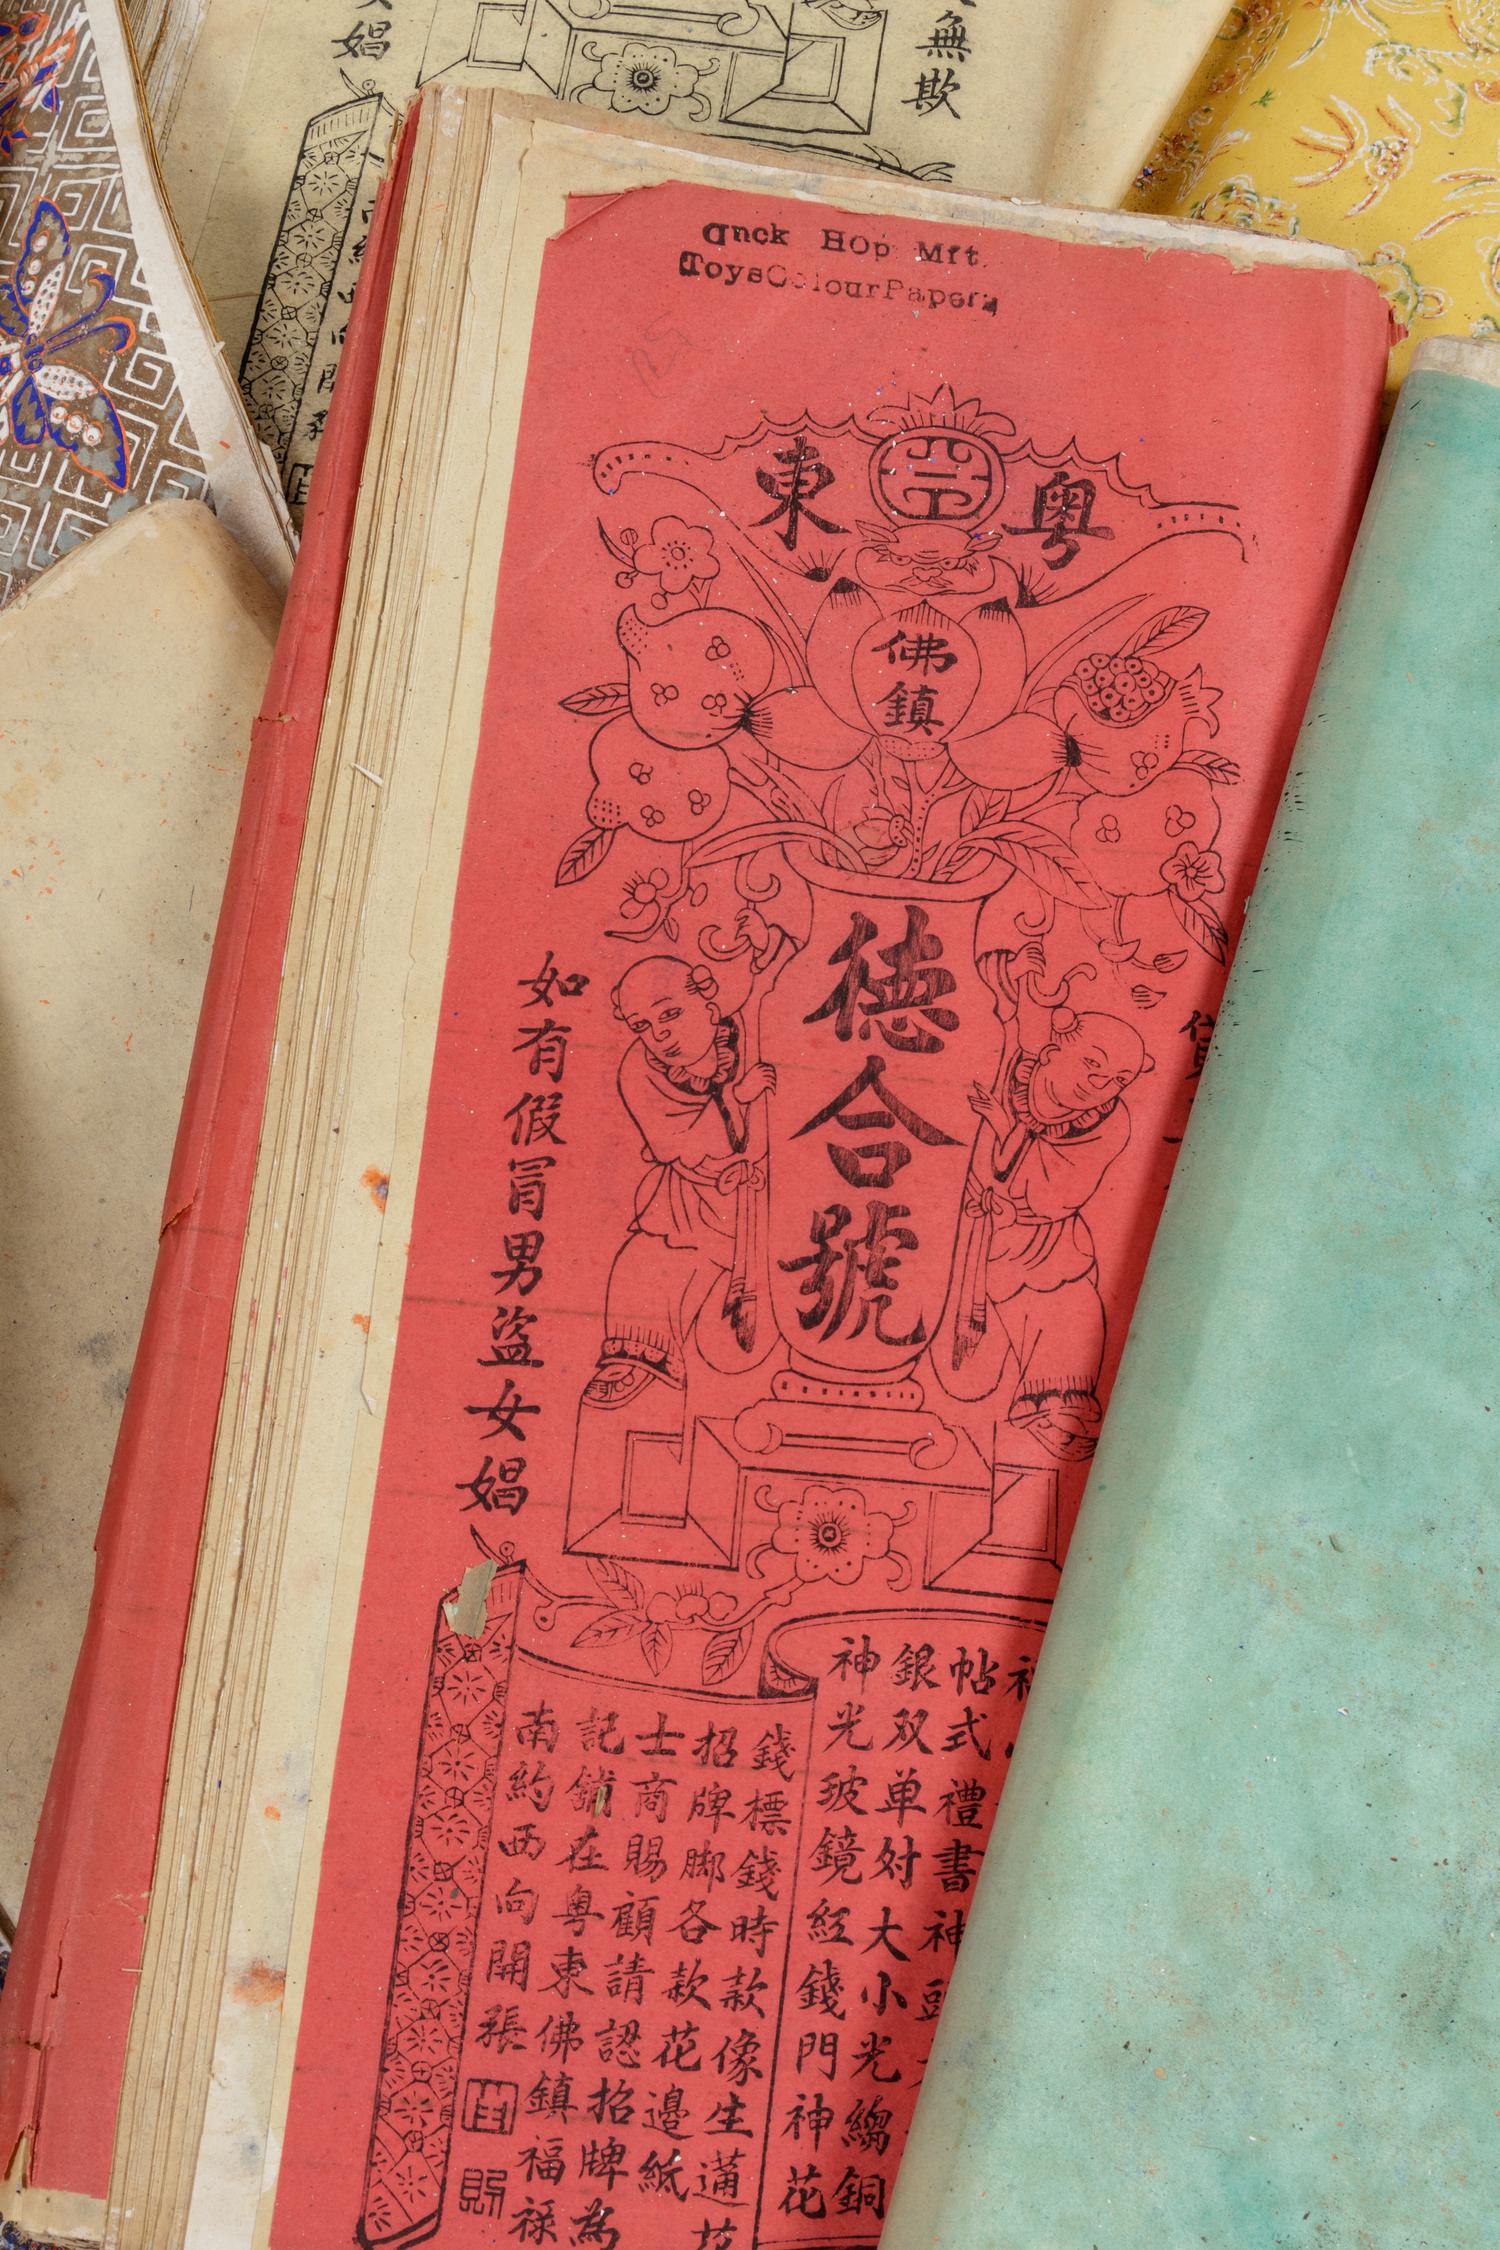 無欺
娼
Quck Hop Mft.
ToysColourPapers
粤東
佛鎮
德合號
如有假冒男盜女娼
帖式禮書神
銀双单对大小光縐銅
神光玻鏡紅錢門神花
錢標錢時款像生蓪花
招牌脚各款花邊紙
士商賜顧請認招牌為
記舖在粤東佛鎮福禄
南約西向開張